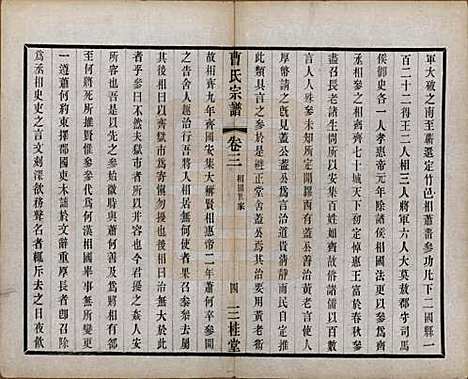 軍大破之南至蘄還定竹邑相蕭留參功凡下二國縣一
百二十二得王二人相三人將軍六人大莫敖郡守司馬
侯御史各一人孝惠帝元年除諸侯相國法更以參為齊
丞相參之相齊齊七十城天下初定悼惠王富於春秋參
盡召長老諸生問所以安集百姓如齊故諸儒以百數
言人人殊參未知所定聞膠西有蓋公善治黃老言使人
厚幣請之既見蓋公蓋公為言治道貴清靜而民自定推
此類具言之參於是避正堂舍蓋公焉其治要用黃老術
曹氏宗譜
卷三
相國世家
四
三桂堂
故相齊九年齊國安集大稱賢相惠帝二年蕭何卒參聞
之告舍人趣治行吾將入相居無何使者果召參去屬
其後相曰以齊獄市為寄慎勿擾也後相曰治無大於此
者乎參曰不然夫獄市者所以并容也今君擾之姦人安
所容也吾是以先之參始微時與蕭何善及為將相有郤
至何將死所推賢惟參參代何為漢相國舉事無所變更
一遵蕭何約束擇郡國吏木詘於文辭重厚長者即召除
為丞相史吏之言文刻深欲務聲名者輒斥去之日夜飲